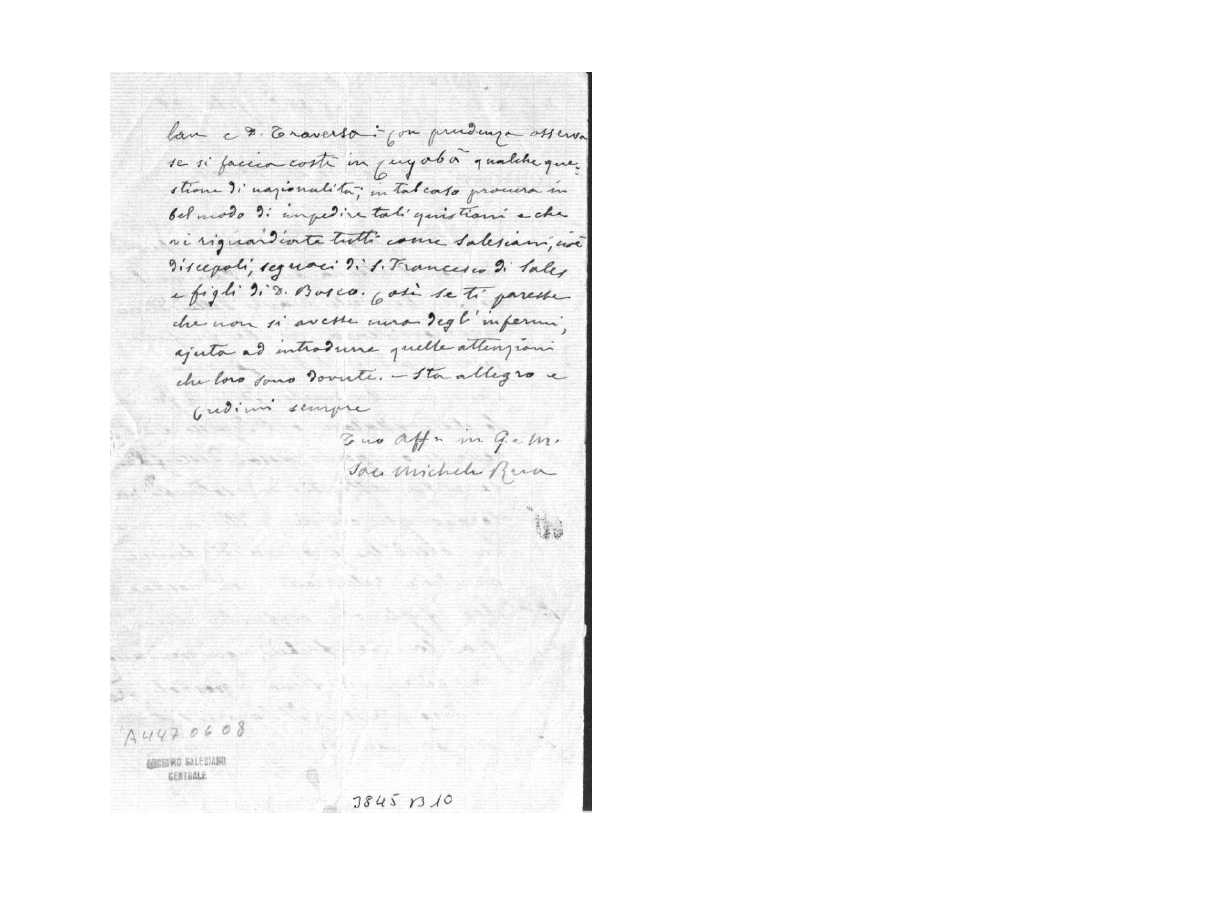 lan e D. Traversa i Con prudenza osserva
se si faccia costì in Cuyabà qualche que-
stione di nazionalità; in tal caso procura in
bel modo di impedire tali quistioni e che
vi riguardiate tutti come Salesiani, cioè
discepoli, seguaci di S. Francesco di Sales
e figli di D. Bosco. Così se ti paresse
che non si avesse cura degl'infermi,
ajuta ad introdurre quelle attenzioni
che loro sono dovute. – Sta allegro e
Credimi sempre
Tuo Aff. in G. e M.
Sac. Michele Rua
A4470608
ARCHIVIO SALESIANO
CENTRALE
3845 B 10